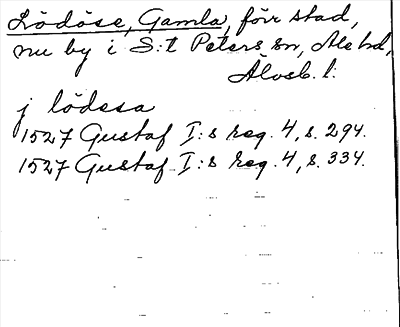 Lödöse, Gamla, förr stad,
nu by i S:t Peters sn, Ale hd,
Älvsb. l.
j lödesa
1527 Gustaf I:s reg. 4, s. 294.
1527 Gustaf I:s reg. 4, s. 334.